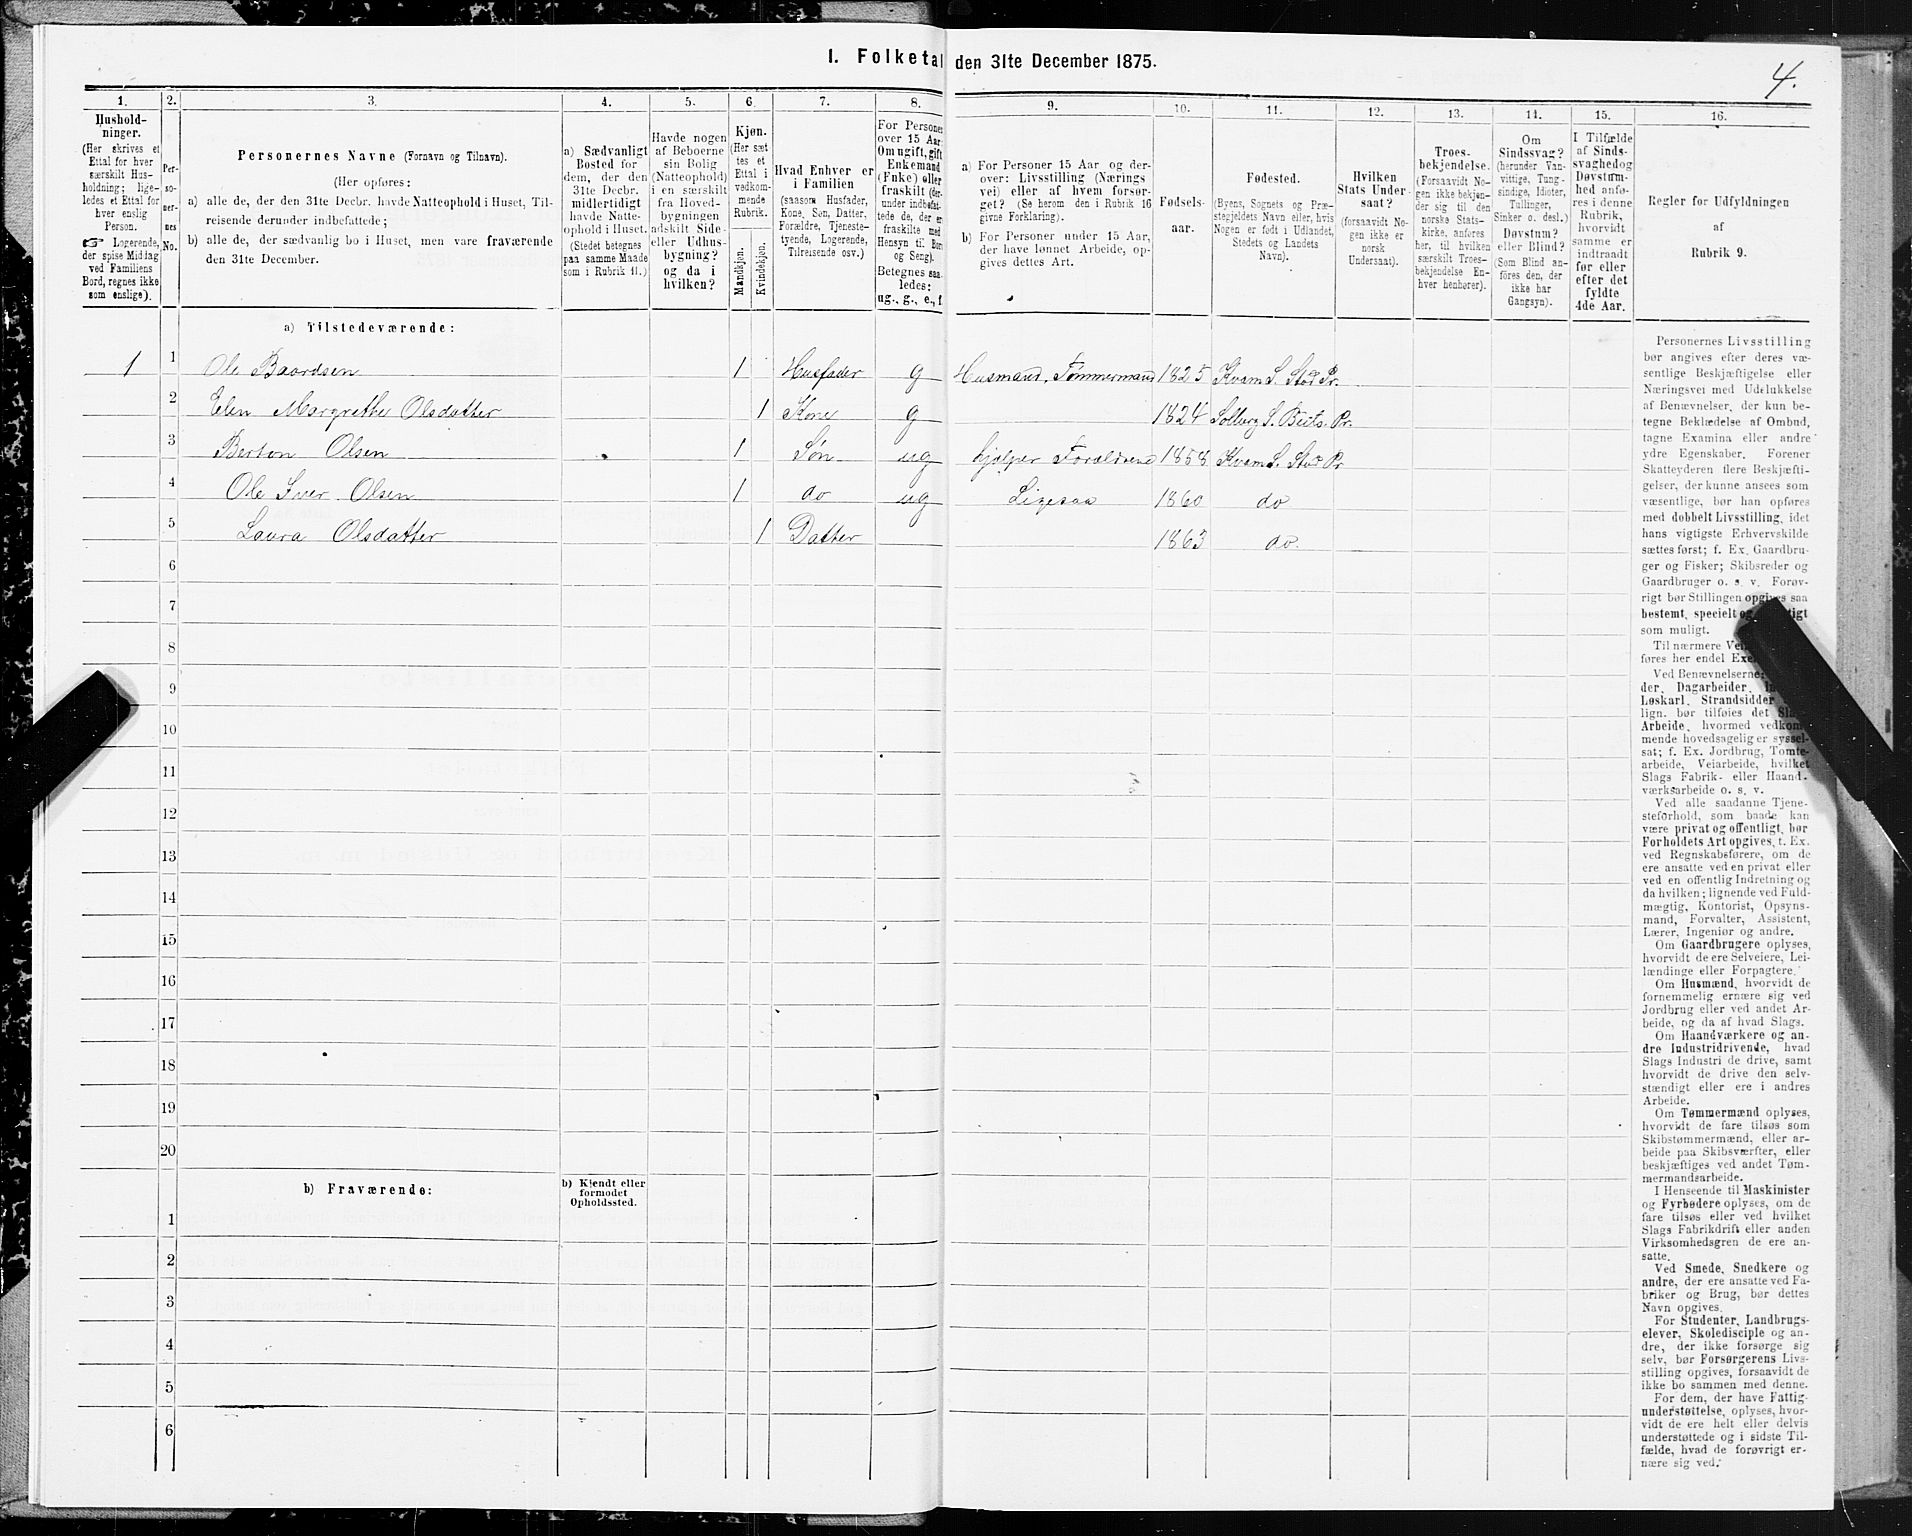 I. Folketal den 31te December 1875.
4.
1.
Hushold-
ninger.
(Her skrives et
Ettal for hver
særskilt Hus-
holdning; lige-
ledes et Ettal for
hver enslig
Person.
☞ Logerende,
der spise Middag
ved Familiens
Bord, regnes ikke
som enslige).
2.
Per-
so-
ner-
nes
No.
3.
Personernes Navne (Fornavn og Tilnavn).
(Her opføres:
a) alle de, der den 31te Decbr. havde Natteophold i Huset, Til-
reisende derunder indbefattede;
b) alle de, der sædvanlig bo i Huset, men vare fraværende
den 31te December.
4.
a) Sædvanligt
Bosted for
dem, der den
31te Decbr.
midlertidigt
havde Natte-
ophold i Huset.
(Stedet betegnes
paa samme Maade
som i Rubrik 11.)
5.
Havde nogen
af Beboerne
sin Bolig
(Natteophold)
i en særskilt
fra Hoved-
bygningen
adskilt Side-
eller Udhus-
bygning?
og da i
hvilken?
6.
Kjøn.
(Her sæt-
tes et
Ettal i
vedkom-
mende
Rubrik.
Mandkjøn.
Kvindekjøn.
7.
Hvad Enhver er
i Familien
(saasom Husfader,
Kone, Søn, Datter,
Forældre, Tjeneste-
tyende, Logerende,
Tilreisende osv.)
8.
For Personer
over 15 Aar:
Om ugift, gift
Enkemand
(Enke) eller
fraskilt (der-
under indbefat-
tede de, der er
fraskilte med
Hensyn til Bord
og Seng).
Betegnes saa-
ledes:
ug., g., e., f.
9.
a) For Personer 15 Aar og der-
over: Livsstilling (Nærings-
vei) eller af hvem forsør-
get? (Se herom den i Rubrik 16
givne Forklaring).
b) For Personer under 15 Aar,
der have lønnet Arbeide, op-
gives dettes Art.
10.
Fødsels-
aar.
11.
Fødested.
(Byens, Sognets og Præ-
stegjeldets Navn eller, hvis
Nogen er født i Udlandet,
Stedets og Landets
Navn).
12.
Hvilken
Stats Under-
saat?
(forsaavidt No-
gen ikke er
norsk
Undersaat).
13.
Troes-
bekjendelse.
(Forsaavidt No-
gen ikke bekjen-
der sig til den
norske Stats-
kirke, anføres
her, til hvilken
særskilt Troes-
bekjendelse En-
hver henhører).
14.
Om
Sindssvag?
(herunder Van-
vittige, Tung-
sindige, Idioter,
Tullinger,
Sinker o. desl.)
Døvstum?
eller Blind?
(Som Blind an-
føres den, der
ikke har
Gangsyn).
15.
I Tilfælde
af Sinds-
svaghed og
Døvstum-
hed anfø-
res i denne
Rubrik,
hvorvidt
samme er
indtraadt
før eller
efter det
fyldte
4de Aar.
16.
Regler for Udfyldningen
af
Rubrik 9.
a) Tilstedeværende:
1 1 Ole Baardsen 1 Husfader g Husmand, Tømmermand 1825 Kvam S. Stod Pr.
2 Elen Margrethe Olsdatter 1 Kone g 1824 Solberg S. Beits. Pr.
3 Berton Olsen 1 Søn ug hjelper Forældrene 1858 Kvam S. Stod Pr
4 Ole Iver Olsen 1 do ug Ligesaa 1860 do
5 Laura Olsdatter 1 Datter 1863 do.
6
7
8
9
10
11
12
13
14
15
16
17
18
19
20
b) Fraværende:
b) Kjendt eller
formodet
Opholdssted.
1
2
3
4
5
6
Personernes Livsstilling
bør angives efter deres væ-
sentlige Beskjæftigelse eller
Næringsvei med Udelukkelse
af Benævnelser, der kun be-
tegne Beklædelse af Ombud,
tagne Examina eller andre
ydre Egenskaber. Forener
Skatteyderen flere Beskjæfti-
gelser, der kunne ansees som
væsentlige, bør han opføres
med dobbelt Livsstilling, idet
hans vigtigste Erhvervskilde
sættes først; f. Ex. Gaardbru-
ger og Fisker; Skibsreder og
Gaardbruger o. s. v. Forøv-
rigt bør Stillingen opgives saa
bestemt, specielt og
som muligt.
Til nærmere
føres her endel
Ved Benævnelserne
der, Dagarbeider,
Løskarl, Strandsidder
lign. bør tilføies det Slags
Arbeide, hvormed vedkom-
mende hovedsagelig er syssel-
sat; f. Ex. Jordbrug, Tomte-
arbeide, Veiarbeide, hvilket
Slags Fabrik- eller Haand-
værksarbeide o. s. v.
Ved alle saadanne Tjene-
steforhold, som baade kan
være privat og offentligt, bør
Forholdets Art opgives, f. Ex.
ved Regnskabsførere, om de
ere ansatte ved en privat eller
ved en offentlig Indretning og
da hvilken; lignende ved Fuld-
mægtig, Kontorist, Opsyns-
mand, Forvalter, Assistent,
Lærer, Ingeniør og andre.
Om Gaardbrugere oplyses,
hvorvidt de ere Selveiere, Lei-
lændinge eller Forpagtere.
Om Husmænd, hvorvidt de
fornemmelig ernære sig ved
Jordbrug eller ved andet Ar-
beide, og da af hvad Slags.
Om Haandværkere og an-
dre Industridrivende, hvad
Slags Industri de drive, samt
hvorvidt de drive den selv-
stændigt eller ere i andres
Arbeide.
Om Tømmermænd oplyses,
hvorvidt de fare tilsøs som
Skibstømmermænd, eller ar-
beide paa Skibsværfter, eller
beskjæftiges ved andet Tøm-
mermandsarbeide.
I Henseende til Maskinister
og Fyrbødere oplyses, om de
fare tilsøs eller ved hvilket
Slags Fabrikdrift eller anden
Virksomhedsgren de ere an-
satte.
Ved Smede, Snedkere og
andre, der ere ansatte ved Fa-
briker og Brug, bør dettes
Navn opgives.
For Studenter, Landbrugs-
elever, Skoledisciple og an-
dre, der ikke forsørge sig
selv, bør Forsørgerens Livs-
stilling opgives, forsaavidt de
ikke bo sammen med denne.
For dem, der have Fattig-
understøttelse, oplyses, hvor-
vidt de ere helt eller delvis
understøttede og i sidste Til-
fælde, hvad de forøvrigt er-
nære sig ved.